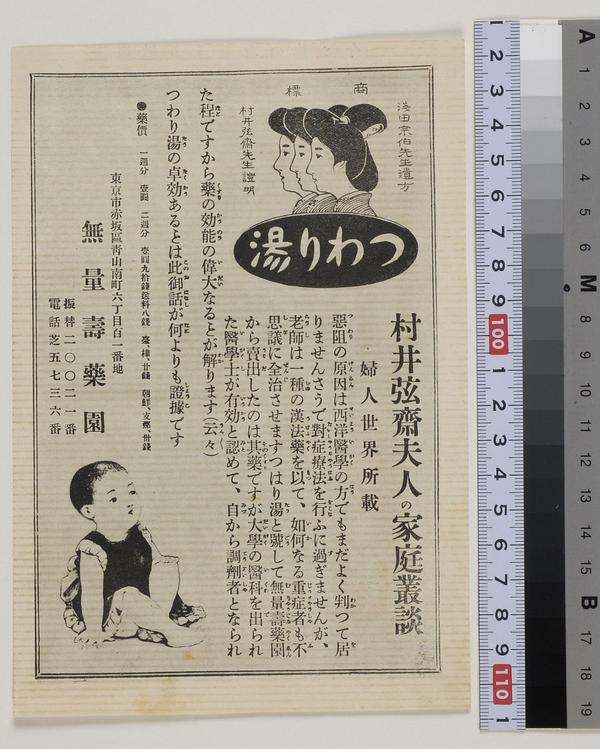 商標
淺田宗伯先生遺方
村井弦齋先生證明
つわり湯
村井弦齋夫人の家庭叢談
婦人世界所載
惡阻の原因は西洋醫學の方でもまだよく判つて居
りませんさうで對症療法を行ふに過ぎませんが、
老師は一種の漢法藥を以て、如何なる重症者も不
思議に全治させますつはり湯と號して無量壽藥園
から賣出したのは其藥ですが大學の醫科を出られ
た醫學士が有効と認めて、自から調劑者となられ
た程ですから藥の効能の偉大なるとが解ります(云々)
つわり湯の卓効あるとは此御話が何よりも證據です
●藥價 一週分 壹圓 二週分 壹圓九拾錢送料八錢 臺、樺、廿錢 朝鮮、支那、卅錢
東京市赤坂區靑山南町六丁目百二番地
無量壽藥園
振替二〇〇二一番
電話芝五七三六番
2 3 4 5 6 7 8 9 100 1 2 3 4 5 6 7 8 9 110 1
A 1 2 3 4 5 6 M 8 9 10 11 12 13 14 15 B 17 18 19